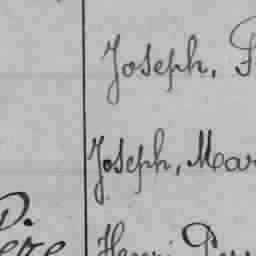 Joseph,
Joseph, Mar
D.
Henri